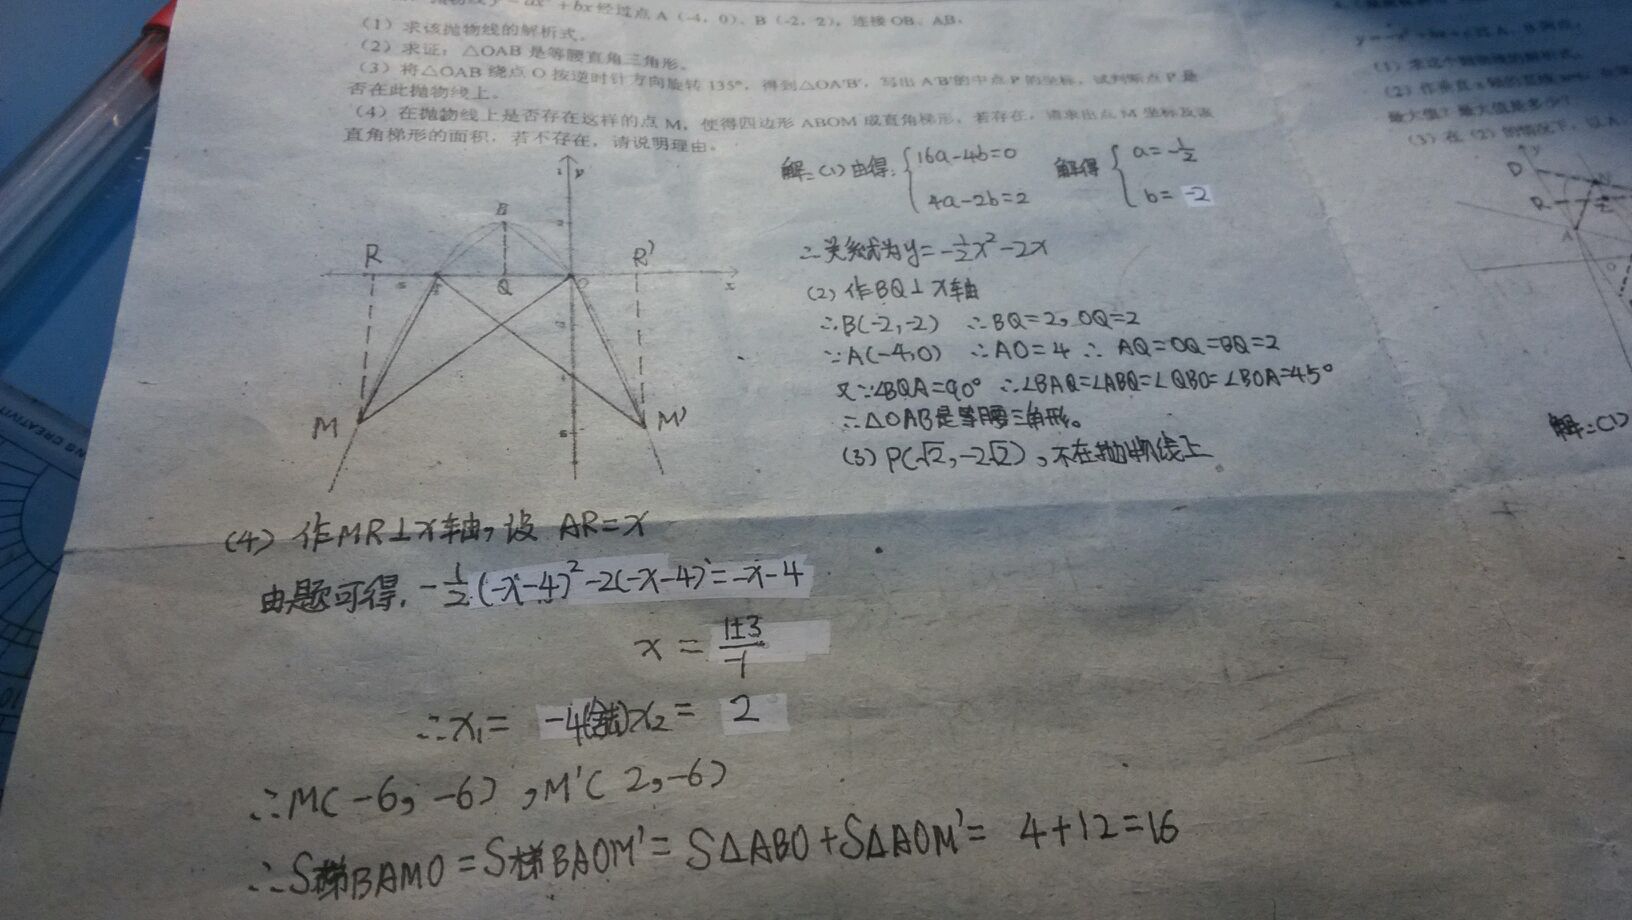 抛物线y=ax²+bx经过点A（-4，0）、B（-2，2），连接OB、AB，
（1）求该抛物线的解析式。
（2）求证：△OAB是等腰直角三角形。
（3）将△OAB绕点O按逆时针方向旋转135°，得到△OA′B′，写出A′B′的中点P的坐标，试判断点P是
否在此抛物线上。
（4）在抛物线上是否存在这样的点M，使得四边形ABOM成直角梯形，若存在，请求出点M坐标及该
直角梯形的面积，若不存在，请说明理由。
解：(1)由得：{16a-4b=0 解得{a=-1/2
4a-2b=2 b=-2
∴关系式为y=-1/2x²-2x
(2)作BQ⊥x轴
∴B(-2,-2) ∴BQ=2，OQ=2
∵A(-4,0) ∴AO=4 ∴AQ=OQ=BQ=2
又∵∠BQA=90° ∴∠BAQ=∠ABQ=∠QBO=∠BOA=45°
∴△OAB是等腰三角形。
(3) P(√2,-2√2)，不在抛物线上
B
y
R
R′
Q
O
x
M
M′
(4) 作MR⊥x轴，设 AR=x
由题可得，-1/2(-x-4)²-2(-x-4)=-x-4
x=(1±3)/-1
∴x₁=-4(舍去)x₂=2
∴M(-6,-6)，M′(2,-6)
∴S梯BAMO=S梯BAOM′=S△ABO+S△AOM′=4+12=16
（1）求这个抛物线的解析式。
最大值？最大值是多少？
（3）在（2）的情况下，以A、
y
D
N
R
E
A
解：(1)